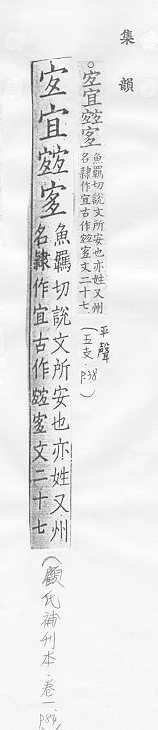 集韻
宜
魚羈切說文所安也亦姓又州
名隸作宜古作文二十七
(平聲
五支．p38)
宜
魚羈切說文所安也亦姓又州
名隸作宜古作文二十七
(顧氏補刊本．卷一